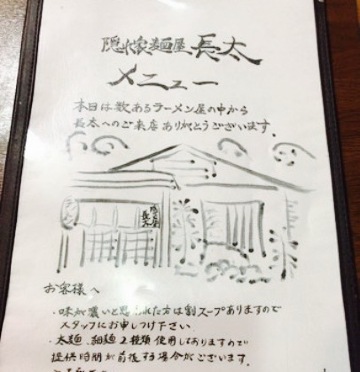 隠れ家麺屋 長太
メニュー
本日は数あるラーメン屋の中から
長太へのご来店ありがとうございます。
ラーメン
長太
お客様へ
・味が濃いと思われた方は割スープありますので
スタッフにお申しつけ下さい。
・太麺、細麺2種類使用しておりますので
提供時間が前後する場合がございます。